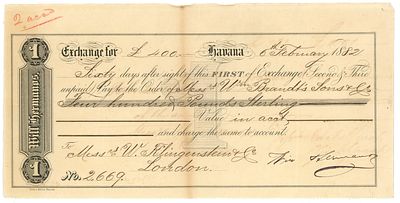 2 acc
Exchange for £ 400.— Havana 6th February 1882
Sixty days after sight of this FIRST of Exchange (Second & Third
unpaid) Pay to the Order of Messrs Wm Brandt's Sons & Co
Four hundred Pounds Sterling
Value in acct
and charge the same to account.
To Messrs W. Klingenstein & Co
London.
No. 2669.
1
Will Hermanos.
1